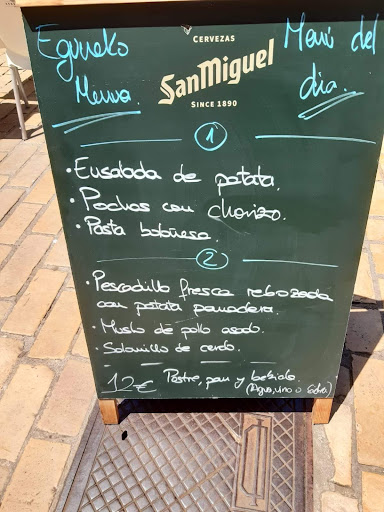 Eguneko Menua.
CERVEZAS
San Miguel
SINCE 1890
Menú del día.
1º
· Ensalada de patata.
· Pochas con chorizo.
· Pasta boloñesa.
2
· Pescadillo fresca rebozada
con patata panadera.
· Muslo de pollo asado.
· Solomillo de cerdo.
12€ Postre, pan y bebida.
(Agua, vino o sidra)